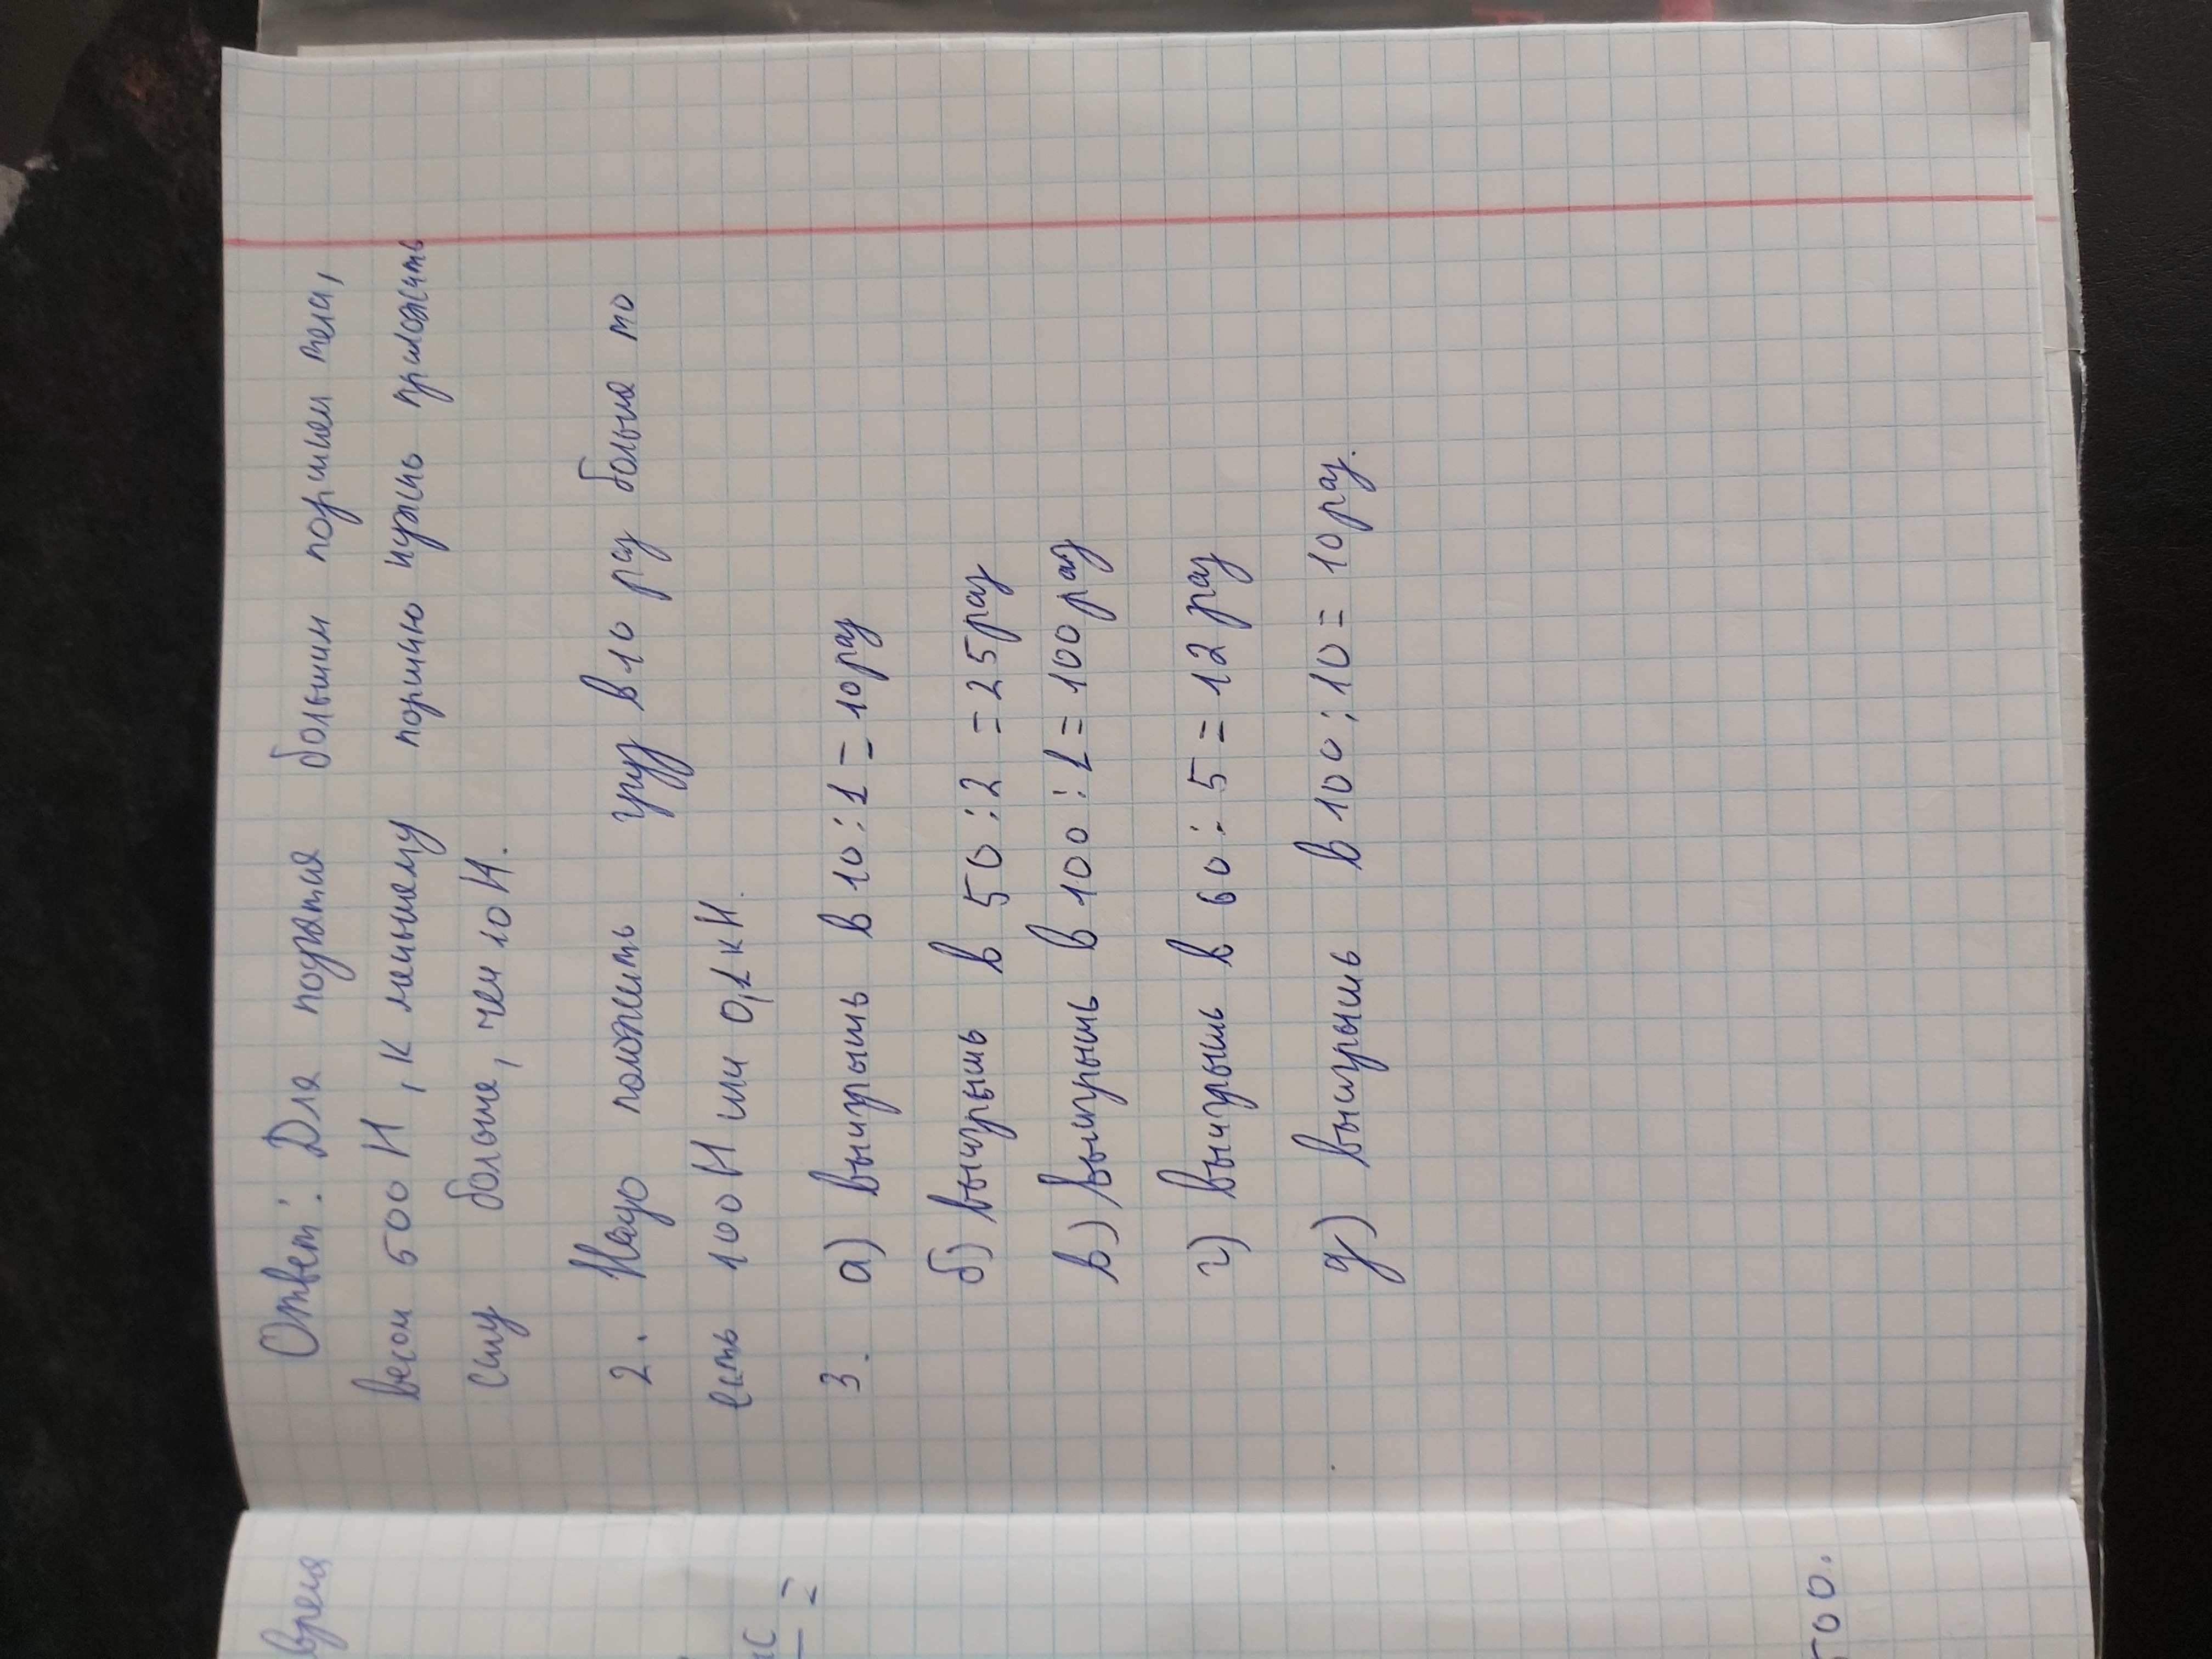 Ответ: Для поднятия большим поршнем тела,
весом 500 Н, к меньшему поршню нужно приложить
силу больше, чем 10 Н.
2. Надо положить груз в 10 раз больше то
есть 100 Н или 0,1 кН.
3. а) выигрышь в 10 : 1 = 10 раз
б) выигрышь в 50 : 2 = 25 раз
в) выигрышь в 100 : 1 = 100 раз
г) выигрышь в 60 : 5 = 12 раз
д) выигрышь в 100 : 10 = 10 раз.
время
=
500.